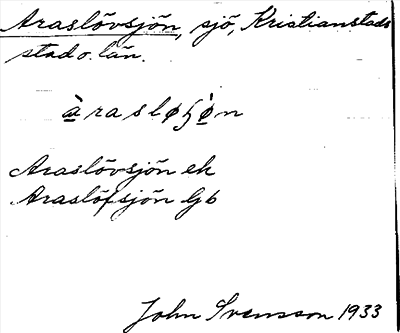 Araslövsjön, sjö, Kristianstads
stad o. län.
àrasløɧø̀n
Araslövsjön ek
Araslöfsjön Gb
John Svensson 1933